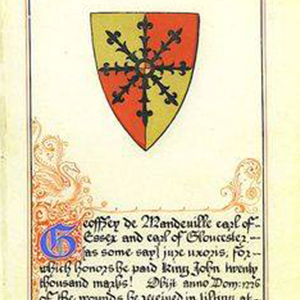 Geoffrey de Mandeville earl of
Essex and earl of Gloucester
as some say jure uxoris, for
which honors he paid King John twenty
thousand marks! Obijt anno Dom: 1216
of the wounds he received in tilting at